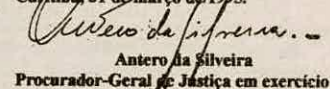 31 de março de 1995.
Antero da Silveira
Antero da Silveira
Procurador-Geral de Justiça em exercício